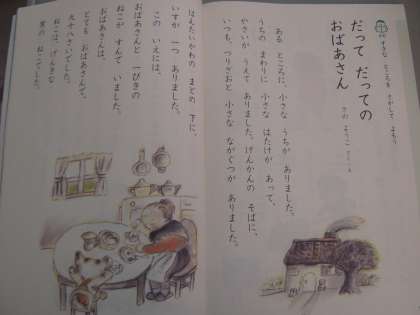 すきな ところを さがして よもう
だって だっての
おばあさん
さの ようこ
ある ところに、小さな うちが ありました。
うちの まわりに 小さな はたけが あって、
やさいが うえて ありました。げんかんの そばに、
いつも、つりざおと 小さな ながぐつが ありました。
はんたいがわの まどの 下に、
いすが 一つ ありました。
この いえには、
おばあさんと 一ぴきの
ねこが すんで いました。
おばあさんは、
とても おばあさんで、
九十八さいでした。
ねこは、げんきな
男の ねこでした。